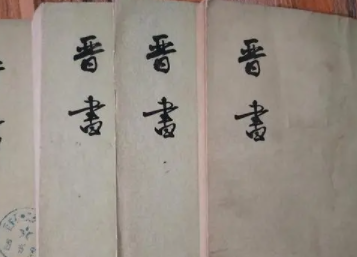 晋
書
晋
書
晋
書